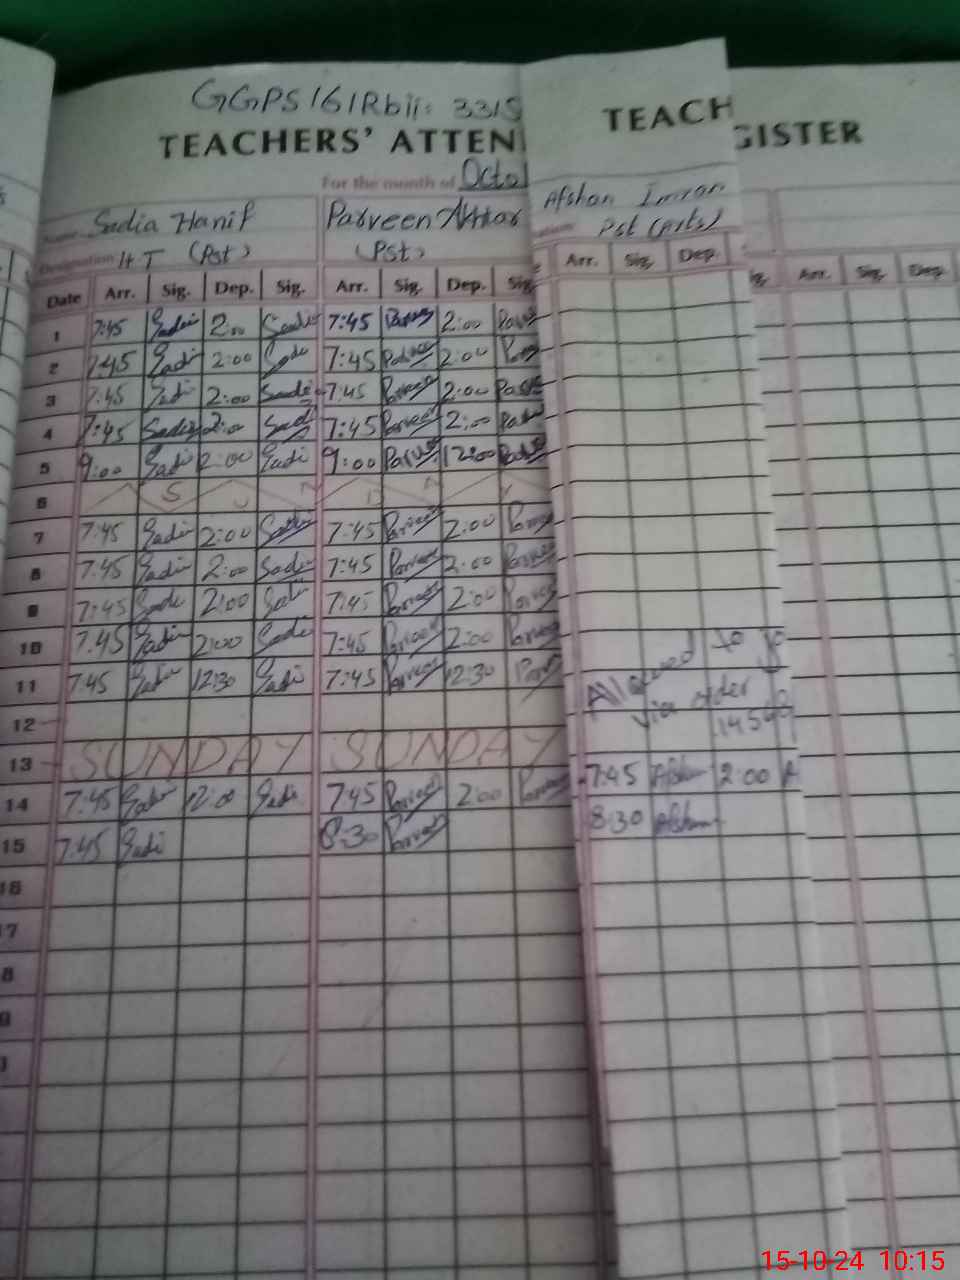 GGPS 161RbII: 3315
TEACHERS' ATTEN TEACH GISTER
For the month of Octo
Name Sadia Hanif Parveen Akhtar Afshan Imran
Designation H T (Pst) (Pst) Pst (Arts)
Date Arr. Sig. Dep. Sig. Arr. Sig. Dep. Sig. Arr. Sig. Dep. Arr. Sig. Dep.
1 7:45 Sadia 2:00 Sadia 7:45 Parveen 2:00
2 7:45 Sadi 2:00 Sadi 7:45 Parveen 2:00
3 7:45 Sadi 2:00 Sadi 7:45 Parveen 2:00
4 7:45 Sadia 2:00 Sadi 7:45 Parveen 2:00
5 9:00 Sadi 12:00 Sadi 9:00 Parveen 12:00
6 S U N D A Y
7 7:45 Sadi 2:00 Sadi 7:45 Parveen 2:00
8 7:45 Sadi 2:00 Sadi 7:45 Parveen 2:00
9 7:45 Sadi 2:00 Sadi 7:45 Parveen 2:00
10 7:45 Sadi 2:00 Sadi 7:45 Parveen 2:00 Allowed to jo
11 7:45 Sadi 12:30 Sadi 7:45 Parveen 12:30 via order
12
13 SUNDAY SUNDAY
14 7:45 Sadi 2:00 Sadi 7:45 Parveen 2:00 7:45 Afshan 2:00 A
15 7:45 Sadi 8:30 Parveen 8:30 Afshan
16
17
8
9
15-10-24 10:15